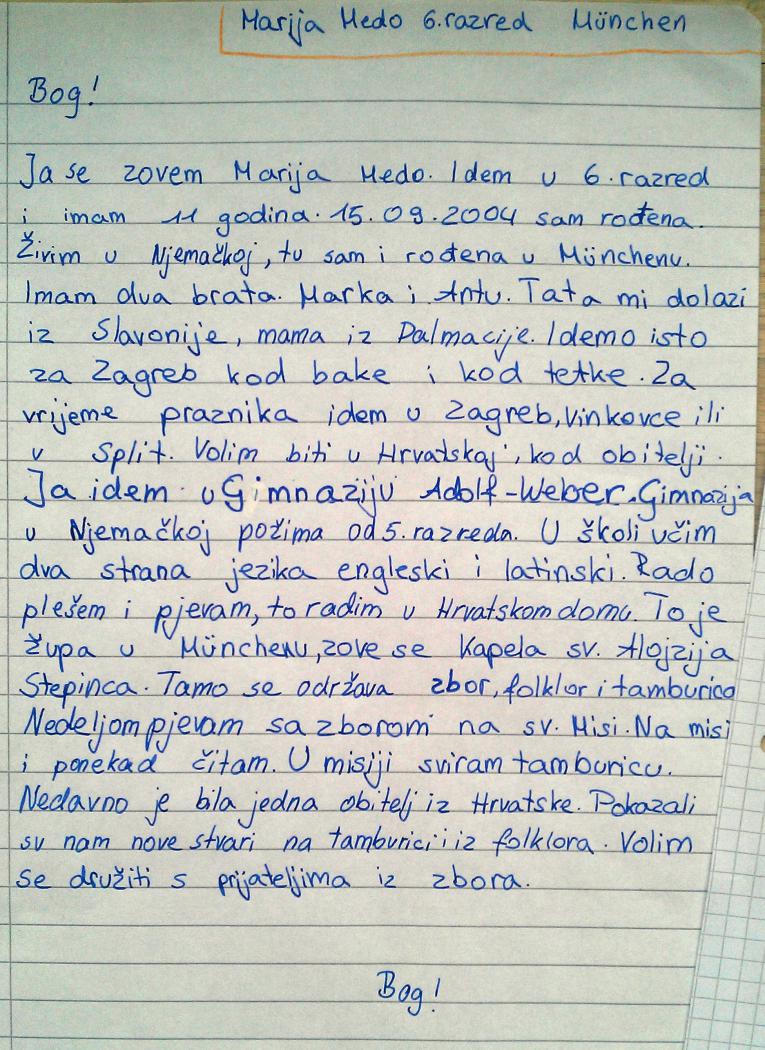 Marija Medo 6.razred München
Bog!
Ja se zovem Marija Medo. Idem u 6.razred
i imam 11 godina. 15.09.2004 sam rođena.
Živim u Njemačkoj, tu sam i rođena u Münchenu.
Imam dva brata. Marka i Antu. Tata mi dolazi
iz Slavonije, mama iz Dalmacije. Idemo isto
za Zagreb kod bake i kod tetke. Za
vrijeme praznika idem u Zagreb, Vinkovce ili
u Split. Volim biti u Hrvatskoj, kod obitelji.
Ja idem u Gimnaziju Adolf-Weber. Gimnazija
u Njemačkoj požima od 5. razreda. U školi učim
dva strana jezika engleski i latinski. Rado
plešem i pjevam, to radim u Hrvatskom domu. To je
župa u Münchenu, zove se Kapela sv. Alojzija
Stepinca. Tamo se održava zbor, folklor i tamburica
Nedeljom pjevam sa zborom na sv. Misi. Na misi
i ponekad čitam. U misiji sviram tamburicu.
Nedavno je bila jedna obitelj iz Hrvatske. Pokazali
su nam nove stvari na tamburici i iz folklora. Volim
se družiti s prijateljima iz zbora.
Bog!